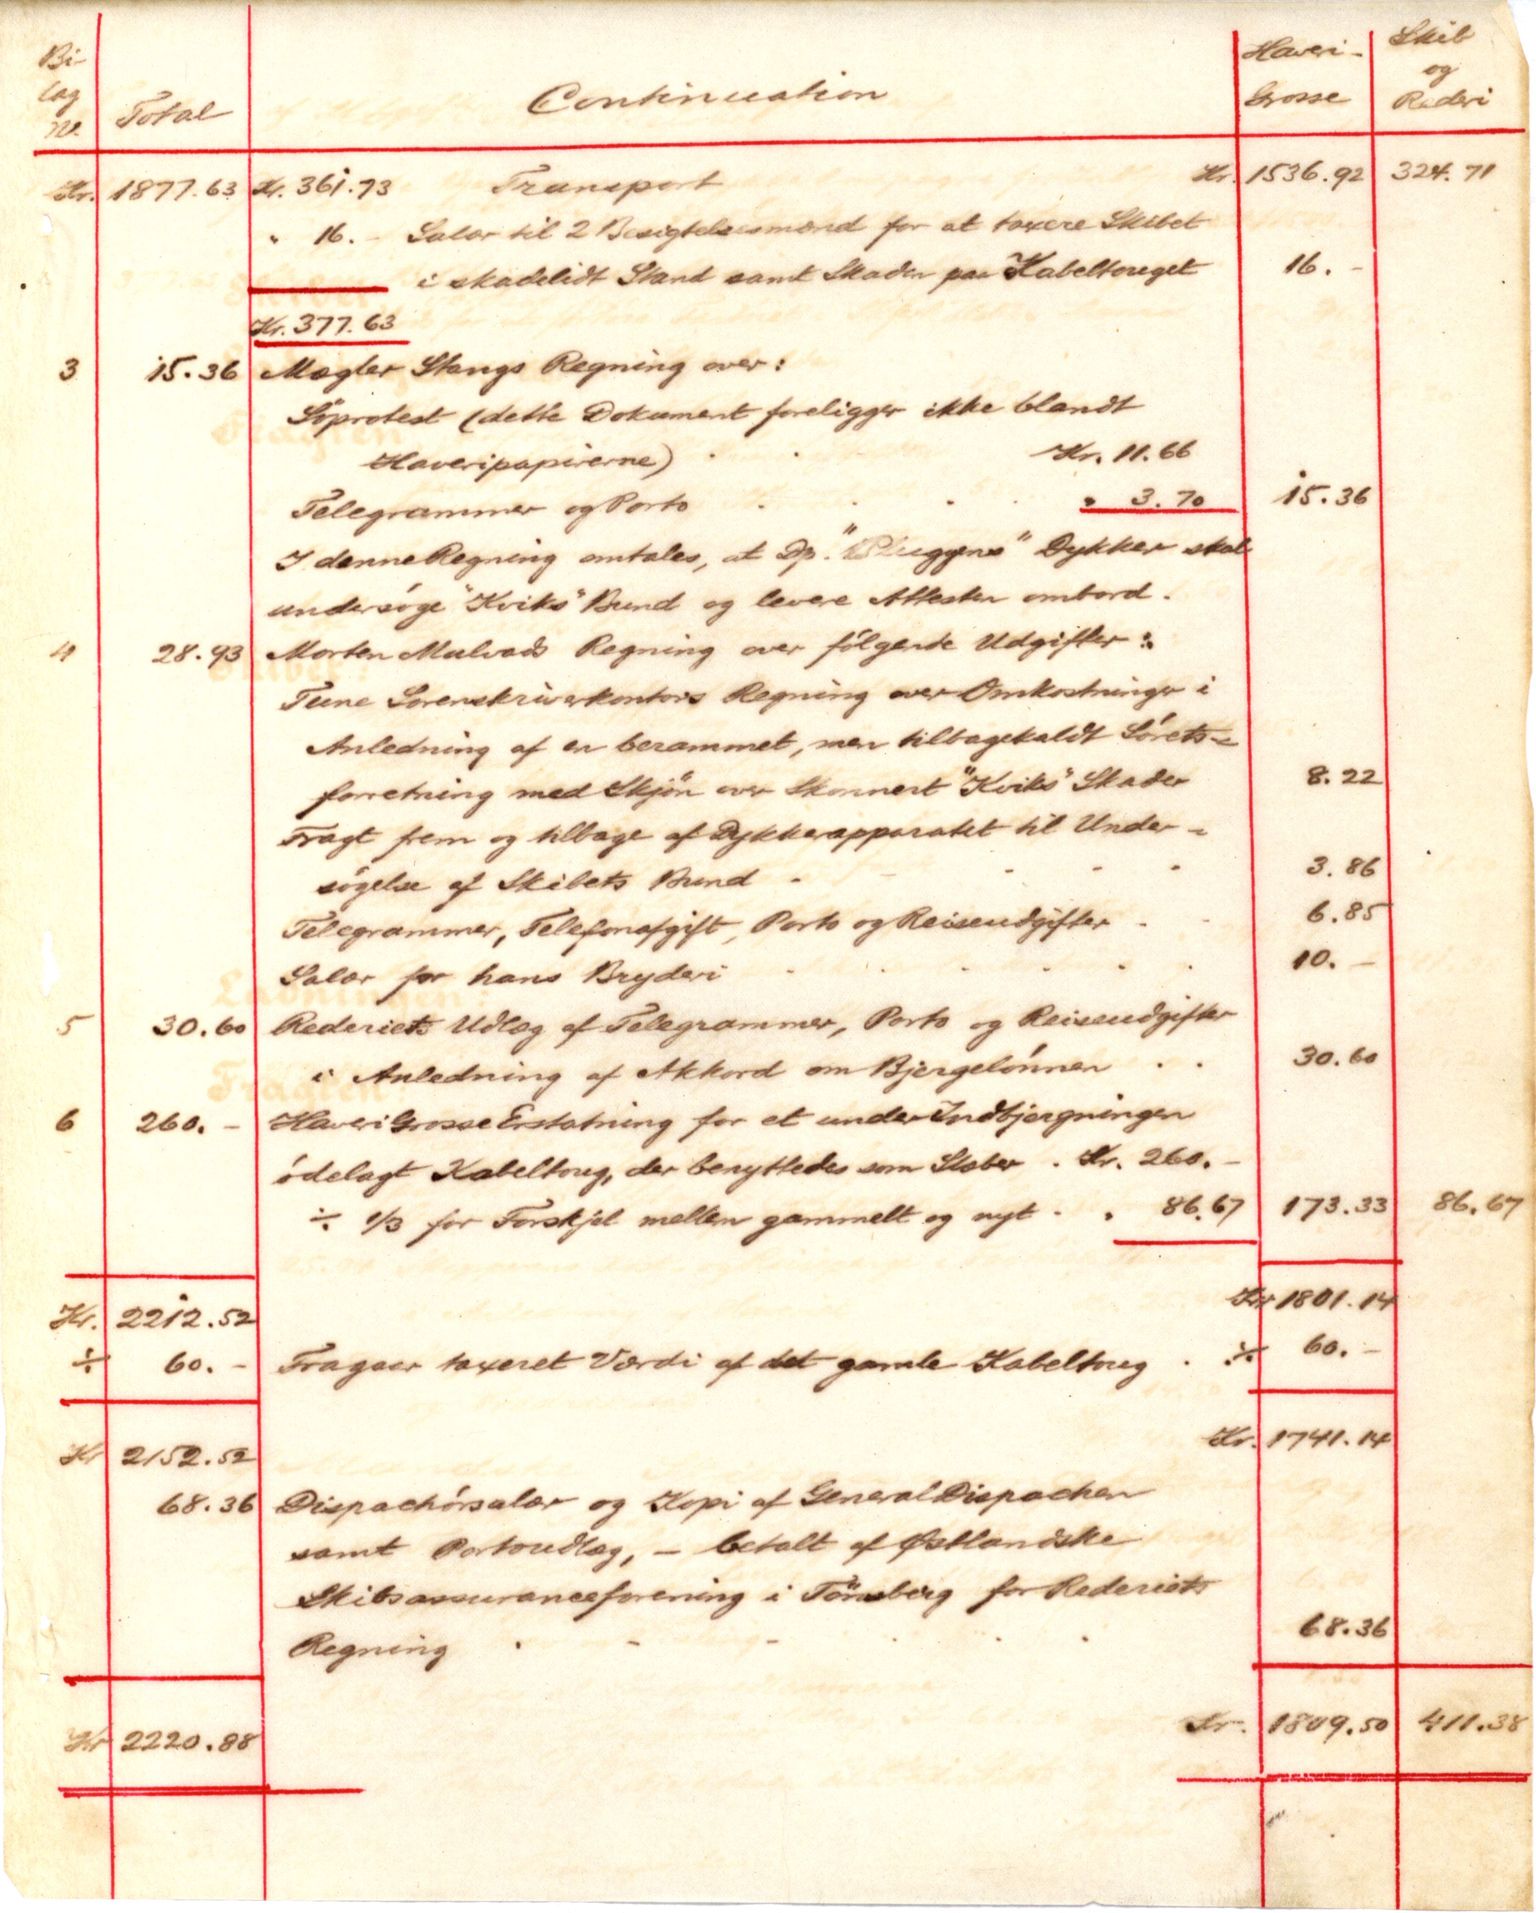 Bi- Haveri- Skib
lag Total Continuation Grosse og
No. Rederi
Kr. 1877.63 Kr. 361.73 Transport Kr. 1536.92 324.71
" 16.- Salær til 2 Besigtelsesmænd for at taxere Skibet
i skadelidt Stand samt Skaden paa Kabeltouget 16.-
Kr. 377.63
3 15.36 Mægler Stangs Regning over:
Söprotest (dette Dokument foreligger ikke blandt
Haveripapirerne) Kr. 11.66
Telegrammer og Porto " 3.70 15.36
I denne Regning omtales, at Dp. "Pluggens" Dykker skal
undersöge "Kviks" Bund og levere Attesten ombord.
4 28.93 Morten Mulvads Regning over fölgende Udgifter:
Tune Sorenskriverkontors Regning over Omkostninger i
Anledning af en berammet, men tilbagekaldt Sörets-
forretning med Skjön over Skonnert "Kviks" Skader 8.22
Fragt frem og tilbage af Dykkerapparatet til Under-
sögelse af Skibets Bund 3.86
Telegrammer, Telefonafgift, Porto og Reiseudgifter 6.85
Salær for hans Bryderi 10.-
5 30.60 Rederiets Udlæg af Telegrammer, Porto og Reiseudgifter
i Anledning af Akkord om Bjergelönnen 30.60
6 260.- Haveri Grosse Erstatning for et under Indbjergningen
ödelagt Kabeltoug, der benyttedes som Slæber . Kr. 260.-
÷ 1/3 for Forskjel mellem gammelt og nyt . " 86.67 173.33 86.67
Kr. 2212.52 Kr 1801.14
÷ 60.- Fragaar taxeret Værdi af det gamle Kabeltoug . ÷ 60.-
Kr 2152.52 Kr. 1741.14
68.36 Dispachörsalær og Kopi af General Dispachen
samt Portoudlæg, - betalt af Østlandske
Skibsassuranceforening i Tönsberg for Rederiets
Regning 68.36
Kr 2220.88 Kr. 1809.50 411.38